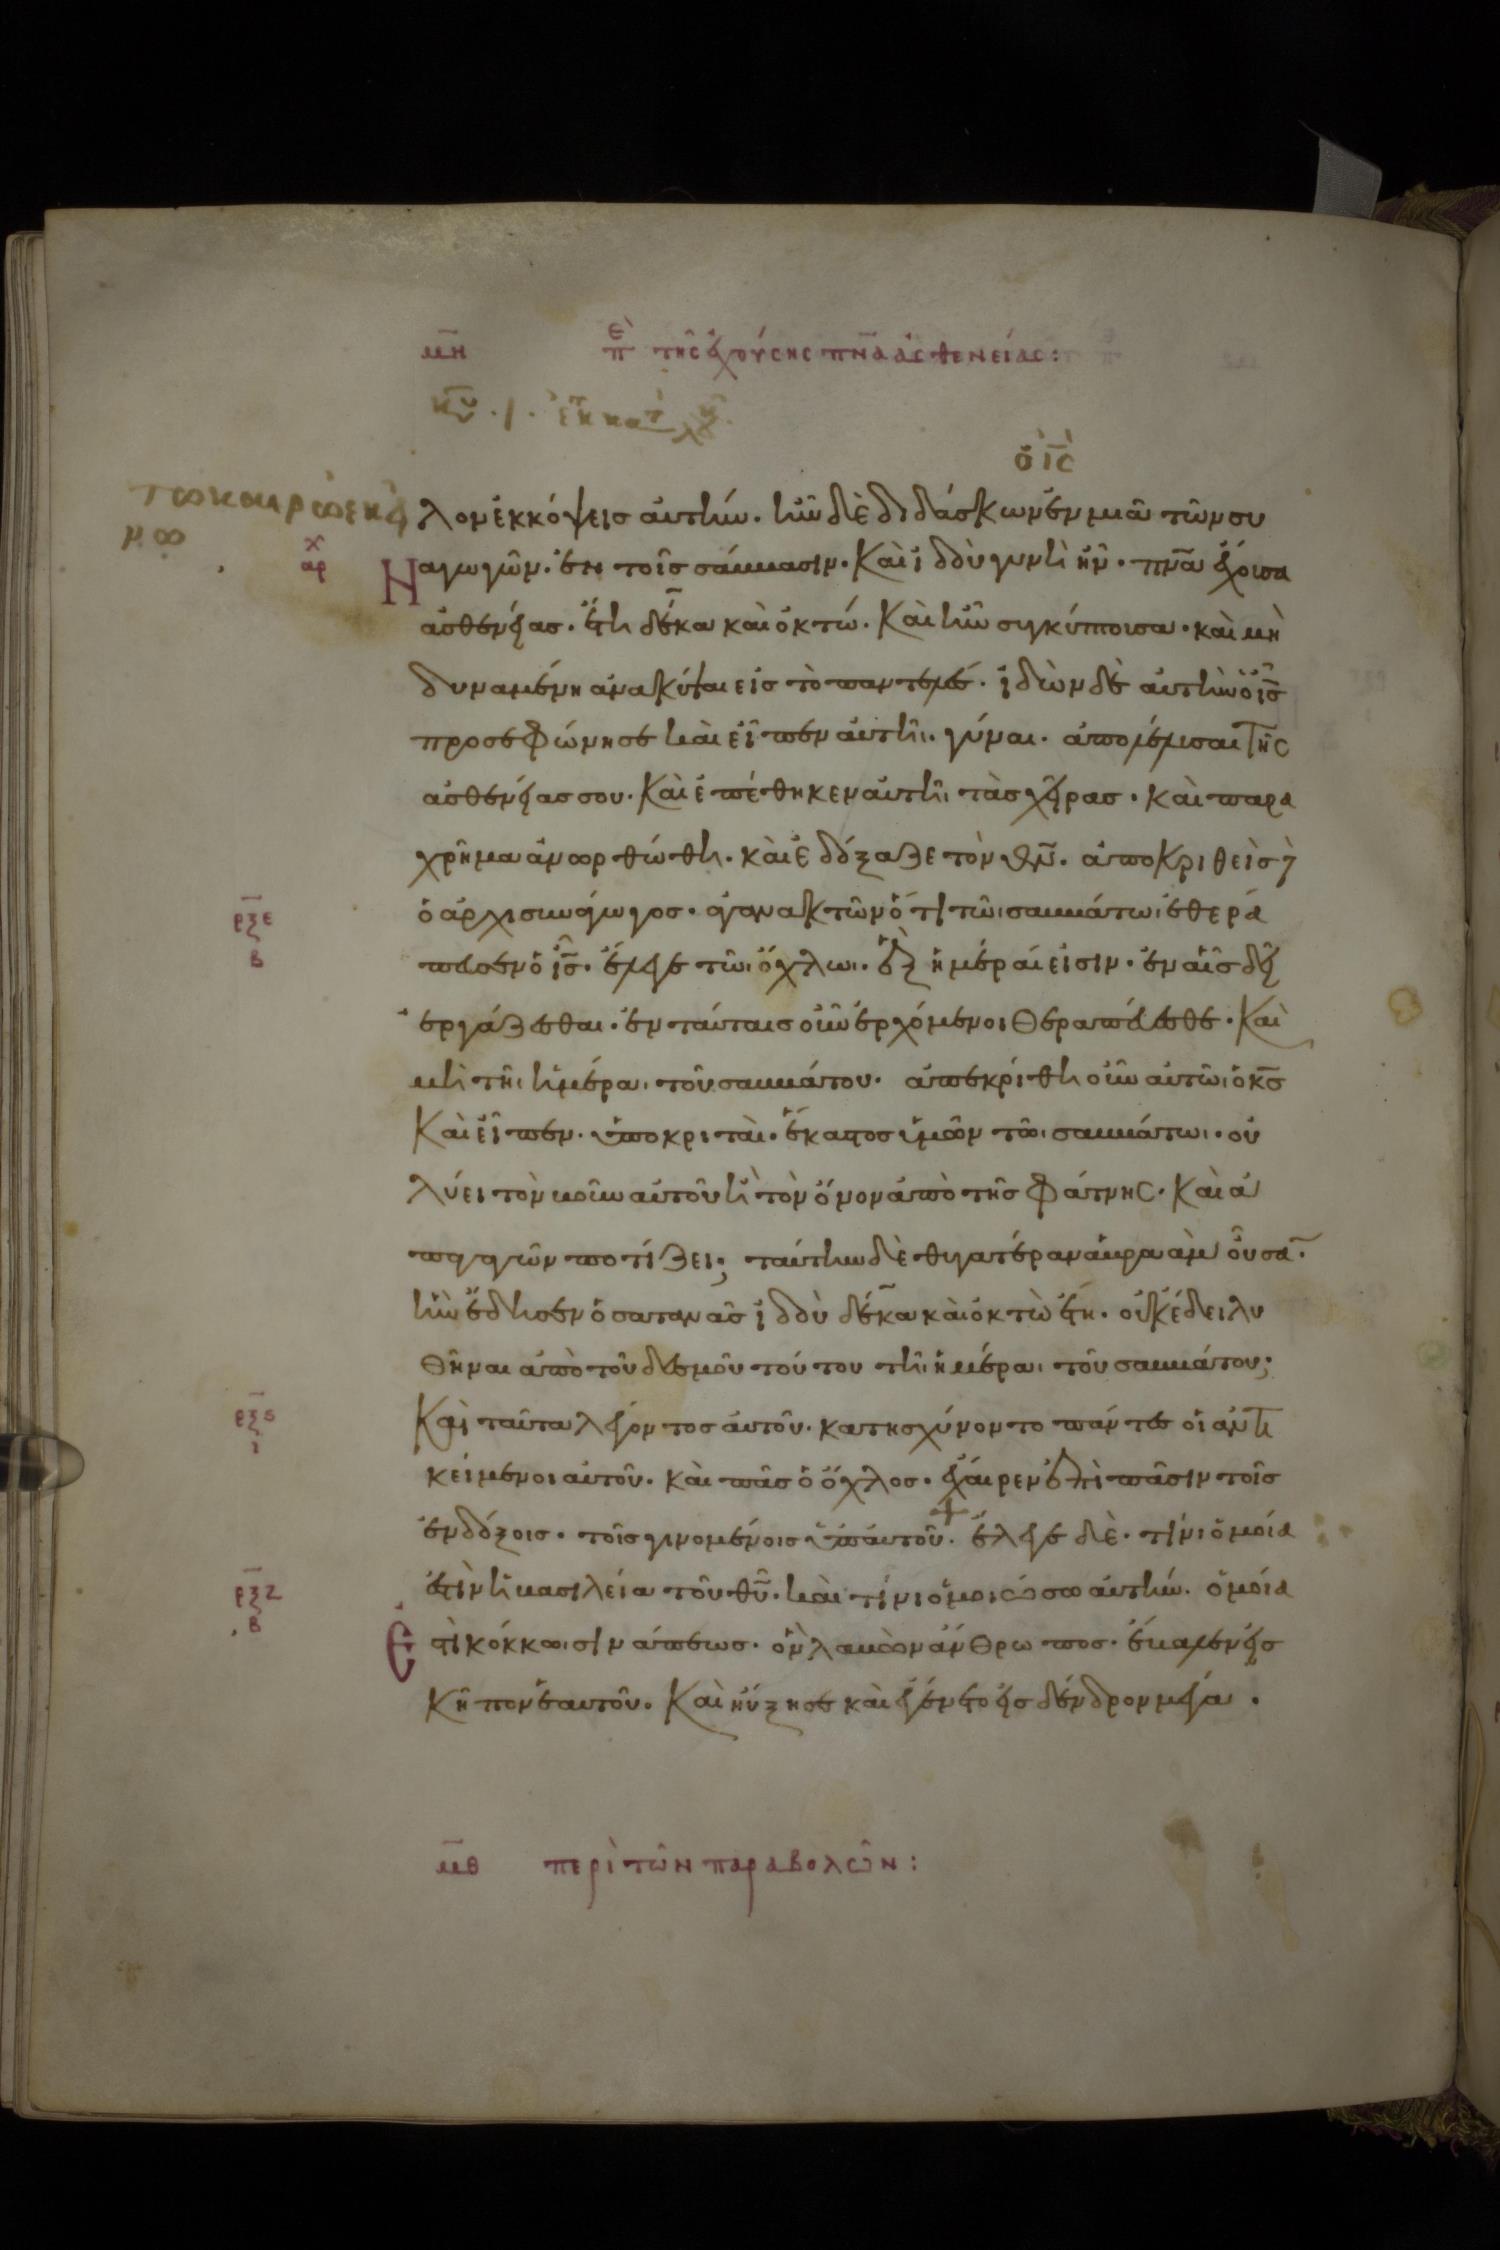 μη πε τῆς ἐχούσης πνᾶ ἀσθενείας:
τω καιρω εκει
αρχ
ὁ ις
λον ἐκκόψεις αὐτήν. ἦν δὲ διδάσκων ἐν μιᾶ τῶν συ
Ναγωγῶν. ἐν τοῖς σάββασιν. Καὶ ἰδοὺ γυνὴ ἦν. πνᾶ ἔχουσα
ἀσθενείας. ἔτη δέκα καὶ ὀκτώ. Καὶ ἦν συγκύπτουσα. καὶ μὴ
δυναμένη ἀνακύψαι εἰς τὸ παντελές. ἰδὼν δὲ αὐτὴν ὁ ις
προσεφώνησε καὶ εἶπεν αὐτῆι. γύναι. ἀπολέλυσαι τῆς
ἀσθενείας σου. Καὶ ἐπέθηκεν αὐτῆι τὰς χεῖρας. καὶ παρα
χρῆμα ἀνωρθώθη. καὶ ἐδόξαζε τὸν θν. ἀποκριθεὶς δὲ
ρξε
β
ὁ ἀρχισυνάγωγος. ἀγανακτῶν ὅτι τῶι σαββάτωι ἐθερά
πευσεν ὁ ις. ἔλεγε τῶι ὄχλωι. ἓξ ἡμέραι εἰσιν. ἐν αἷς δεῖ
ἐργάζεσθαι. ἐν ταύταις οὖν ἐρχόμενοι θεραπεύεσθε. Καὶ
μὴ τῆι ἡμέραι τοῦ σαββάτου. ἀπεκρίθη οὖν αὐτῶι ὁ κς
Καὶ εἶπεν. ὑποκριταὶ. ἕκαστος ὑμῶν τῶι σαββάτωι. οὐ
λύει τὸν βοῦν αὐτοῦ ἢ τὸν ὄνον ἀπὸ τῆς φάτνης. Καὶ ἀ
παγαγὼν ποτίζει; ταύτην δὲ θυγατέραν ἀβραὰμ οὖσαν.
ἣν ἔδησεν ὁ σατανᾶς ἰδοὺ δέκα καὶ ὀκτὼ ἔτη. οὐκ ἔδει λυ
θῆναι ἀπὸ τοῦ δεσμοῦ τούτου τῆι ἡμέραι τοῦ σαββάτου;
ρξς
ι
Καὶ ταῦτα λέγοντος αὐτοῦ. κατησχύνοντο πάντες οἱ ἀντι
κείμενοι αὐτοῦ. καὶ πᾶς ὁ ὄχλος. ἔχαιρεν ἐπὶ πᾶσιν τοῖς
ἐνδόξοις. τοῖς γινομένοις ὑπ αὐτοῦ. + ἔλεγε δὲ. τίνι ὁμοία
ρξζ
β
ἐστὶν ἡ βασιλεία τοῦ θυ. καὶ τίνι ὁμοιώσω αὐτήν. ὁμοία
Ἐστὶ κόκκωι σινάπεως. ὃν λαβὼν ἄνθρωπος. ἔβαλεν εἰς
κῆπον ἑαυτοῦ. Καὶ ηὔξησε καὶ ἐγένετο εἰς δένδρον μέγα.
μθ περὶ τῶν παραβολῶν: